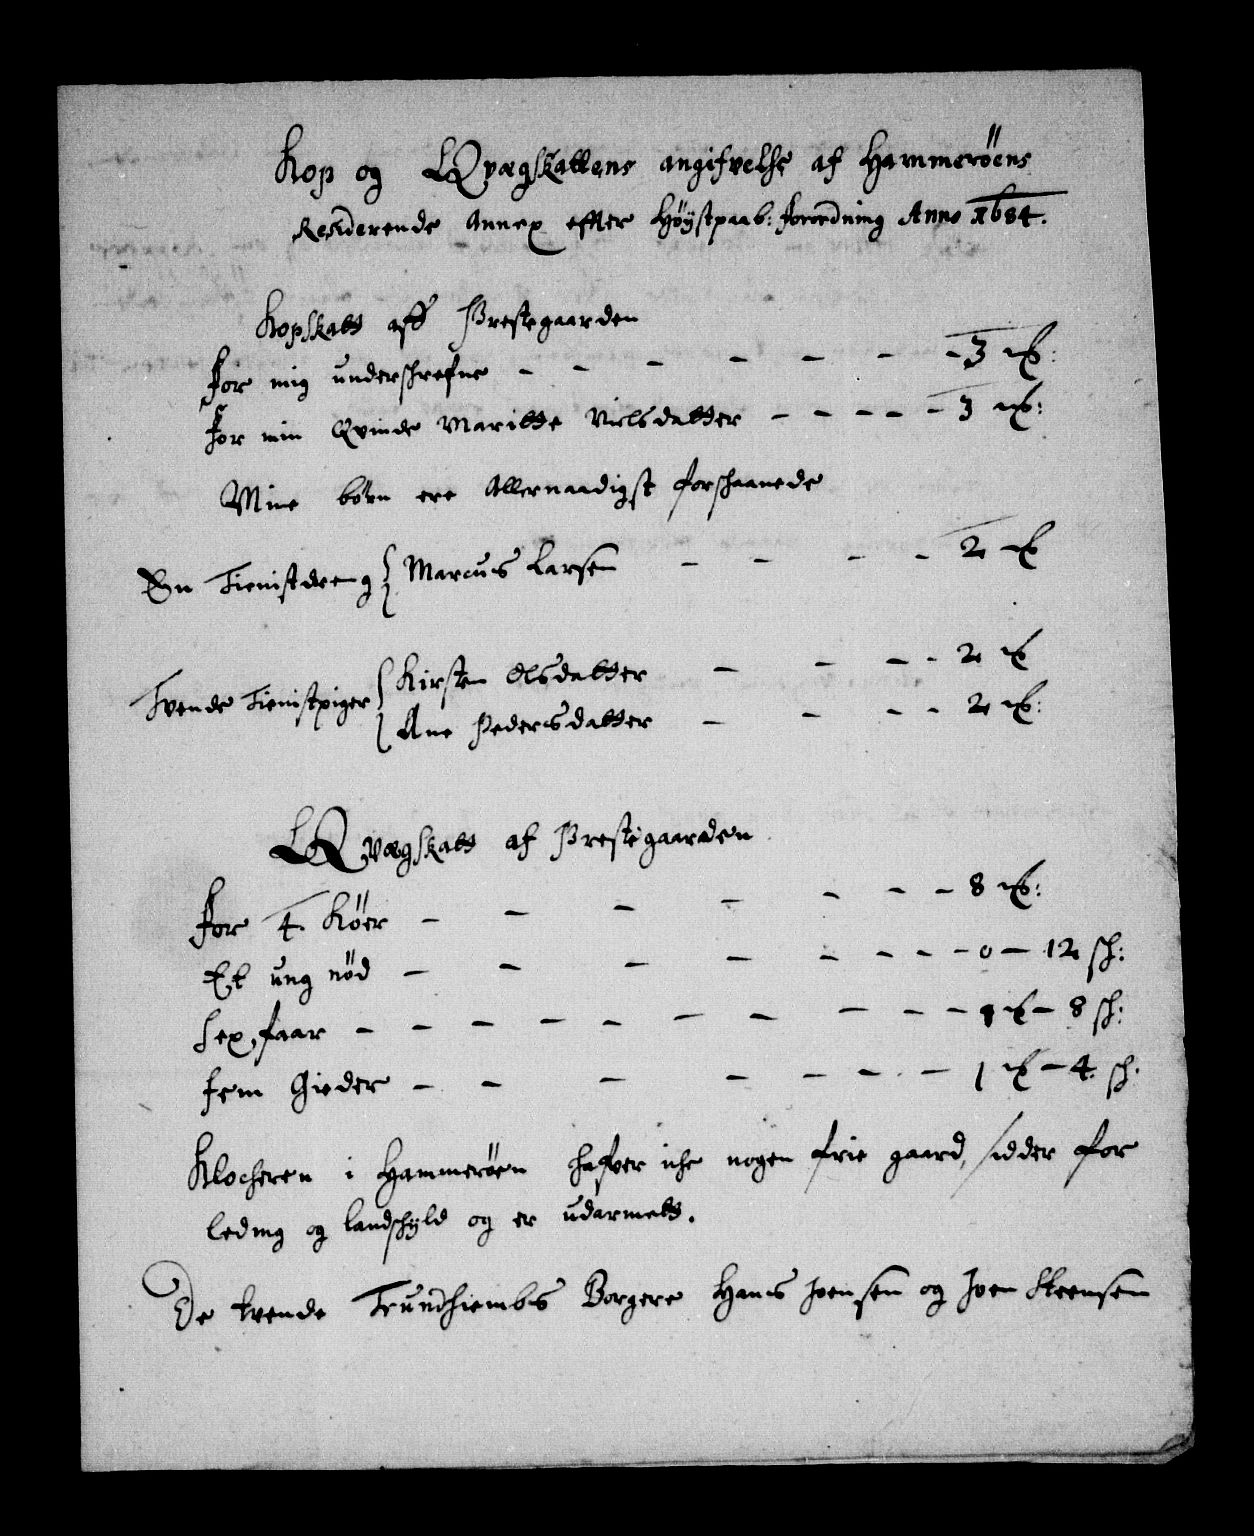 Kop og Qvægskattens angifvelse af Hammeröens
Residerende Annex effter Høÿstpaab: forordning Anno 1684.
Kopskatt aff Prestegaarden
For mig underschrefne - - - - - - - 3 mk:
For min Qvinde Maritte Nielsdatter - - - - - 3 mk:
Mine børn ere Allernaadigst forschaanede
En Tienistdreng { Marcus Larsen - - - - 2 mk
Tvende Tienistpiger { Kirsten Olsdatter - - - - 2 mk
{ Ane Pedersdatter - - - - 2 mk:
Qvægskatt af Prestegaarden
For 4. Köer - - - - - - - 8 mk:
Et ung nöd - - - - - - - - 0 - 12 sh:
Sex faar - - - - - - - - - - 1 mk - 8 sh:
Fem Gieder - - - - - - - 1 mk - 4. sh:
Klocheren i Hammeröen hafver iche nogen frie gaard, sidder for
leding og landschÿld og er udarmett.
De tvende Trundhiembs Borgere Hans Joensen og Joen Steensen